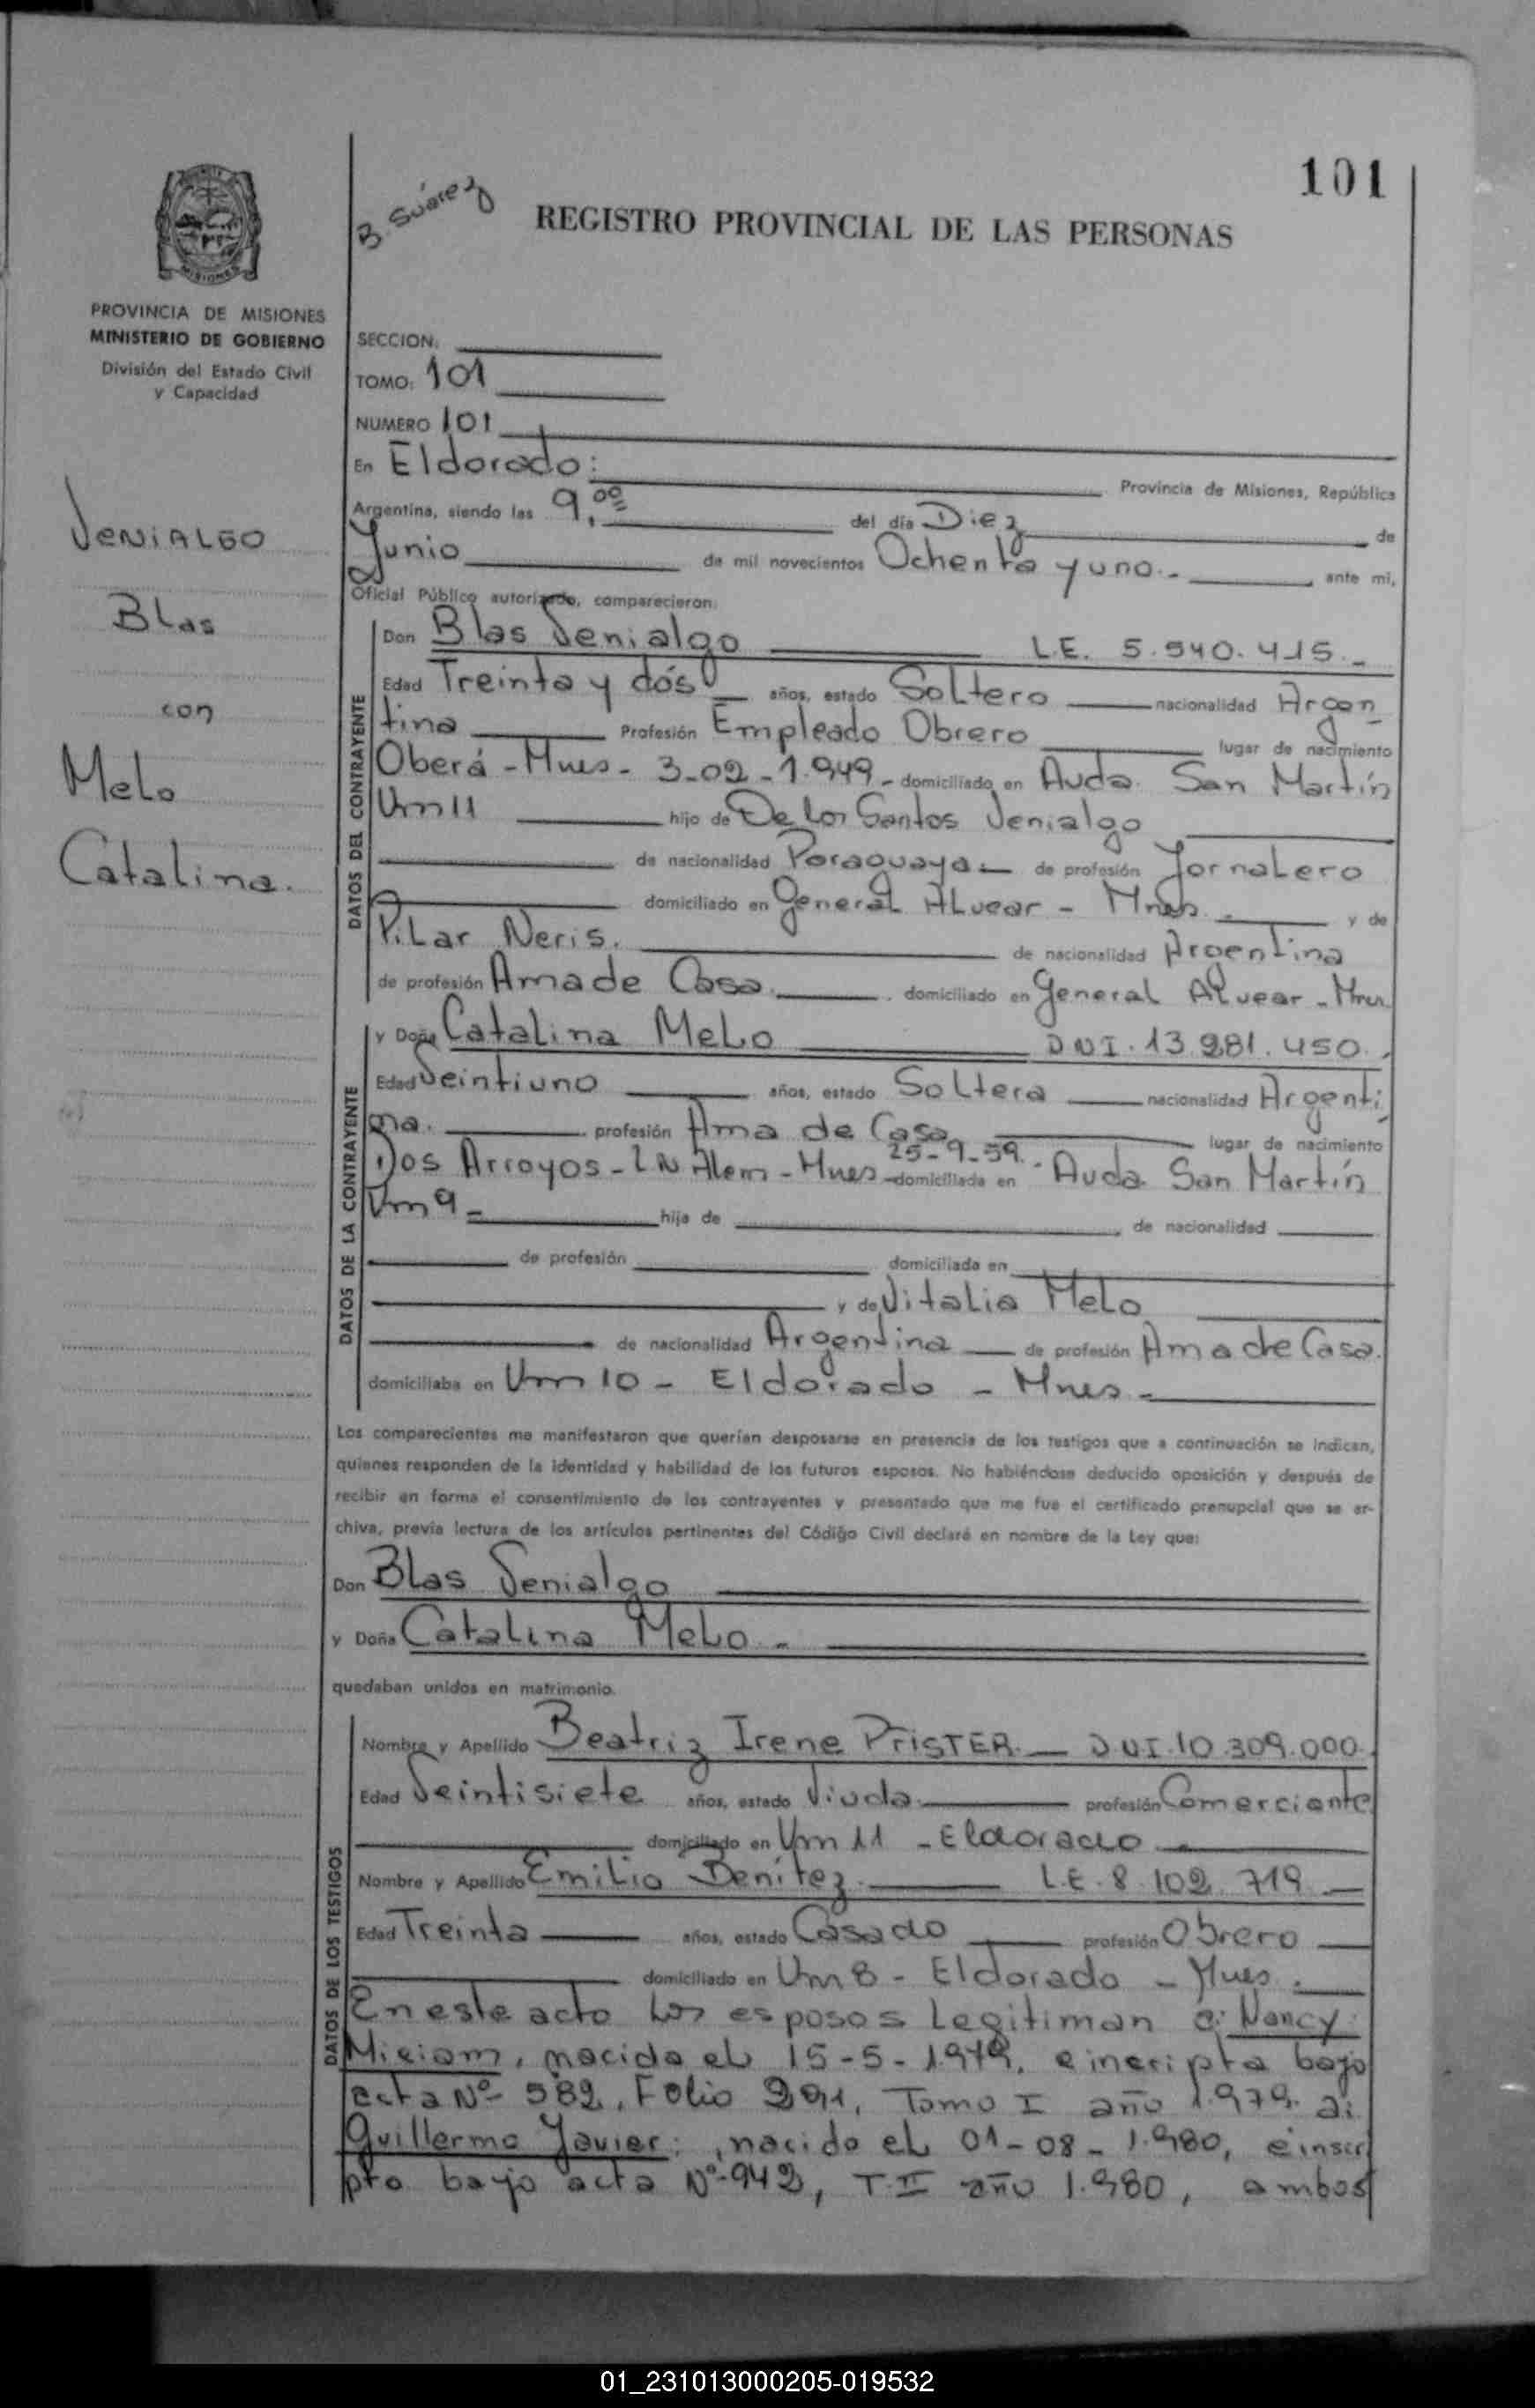 101
B. Suárez
REGISTRO PROVINCIAL DE LAS PERSONAS
MISIONES
PROVINCIA DE MISIONES
MINISTERIO DE GOBIERNO
División del Estado Civil
y Capacidad
VENIALGO
Blas
con
Melo
Catalina.
SECCION:
TOMO: 101
NUMERO 101
En Eldorado: Provincia de Misiones, República
Argentina, siendo las 9,00 del día Diez de
Junio de mil novecientos Ochenta y uno.- ante mi,
Oficial Público autorizado, comparecieron:
DATOS DEL CONTRAYENTE
Don Blas Venialgo L.E. 5.540.415.-
Edad Treinta y dós años, estado Soltero nacionalidad Argen
tina Profesión Empleado Obrero lugar de nacimiento
Oberá - Mnes - 3-02-1.949 - domiciliado en Avda. San Martín
Km 11 hijo de De los Santos Venialgo
de nacionalidad Paraguaya.- de profesión Jornalero
domiciliado en General Alvear - Mnes. y de
Pilar Neris. de nacionalidad Argentina
de profesión Ama de Casa. domiciliado en General Alvear - Mnes
DATOS DE LA CONTRAYENTE
y Doña Catalina Melo DNI. 13.281.450.
Edad Veintiuno años, estado Soltera nacionalidad Argenti
na. profesión Ama de Casa lugar de nacimiento
25-9-59.
Dos Arroyos - L N Alem - Mnes - domiciliada en Avda. San Martín
Km 9 - hija de de nacionalidad
de profesión domiciliada en
y de Vitalia Melo
de nacionalidad Argentina de profesión Ama de Casa.
domiciliaba en Km 10 - Eldorado - Mnes -
Los comparecientes me manifestaron que querían desposarse en presencia de los testigos que a continuación se indican,
quienes responden de la identidad y habilidad de los futuros esposos. No habiéndose deducido oposición y después de
recibir en forma el consentimiento de los contrayentes y presentado que me fue el certificado prenupcial que se ar-
chiva, previa lectura de los artículos pertinentes del Código Civil declaré en nombre de la Ley que:
Don Blas Venialgo
y Doña Catalina Melo. -
quedaban unidos en matrimonio.
DATOS DE LOS TESTIGOS
Nombre y Apellido Beatriz Irene PRISTER. DNI. 10.309.000.
Edad Veintisiete años, estado Viuda. profesión Comerciante
domiciliado en Km 11 - Eldorado -
Nombre y Apellido Emilio Benítez. L.E. 8.102.719
Edad Treinta años, estado Casado profesión Obrero
domiciliado en Km 8 - Eldorado - Mnes.
En este acto los esposos Legitiman a: Nancy
Miriam, nacida el 15-5-1.979, e incripta bajo
acta Nº 582, Folio 291, Tomo I año 1.979. a:
Guillermo Javier: , nacido el 01-08-1.980, e inscri
pto bajo acta Nº 942, T. II año 1.980, ambos
01_231013000205-019532